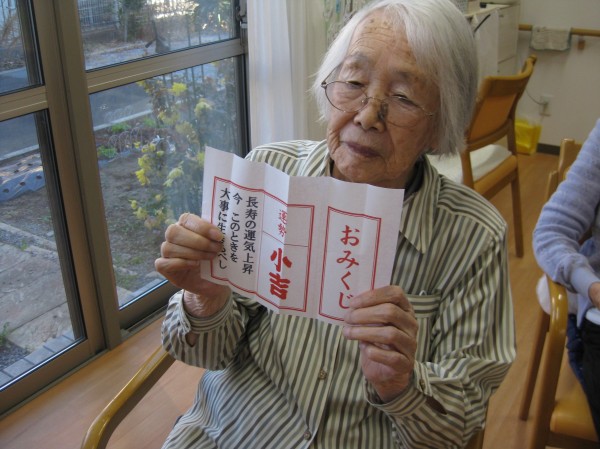 おみくじ
運勢
小吉
長寿の運気上昇
今 このときを
大事に生きべし